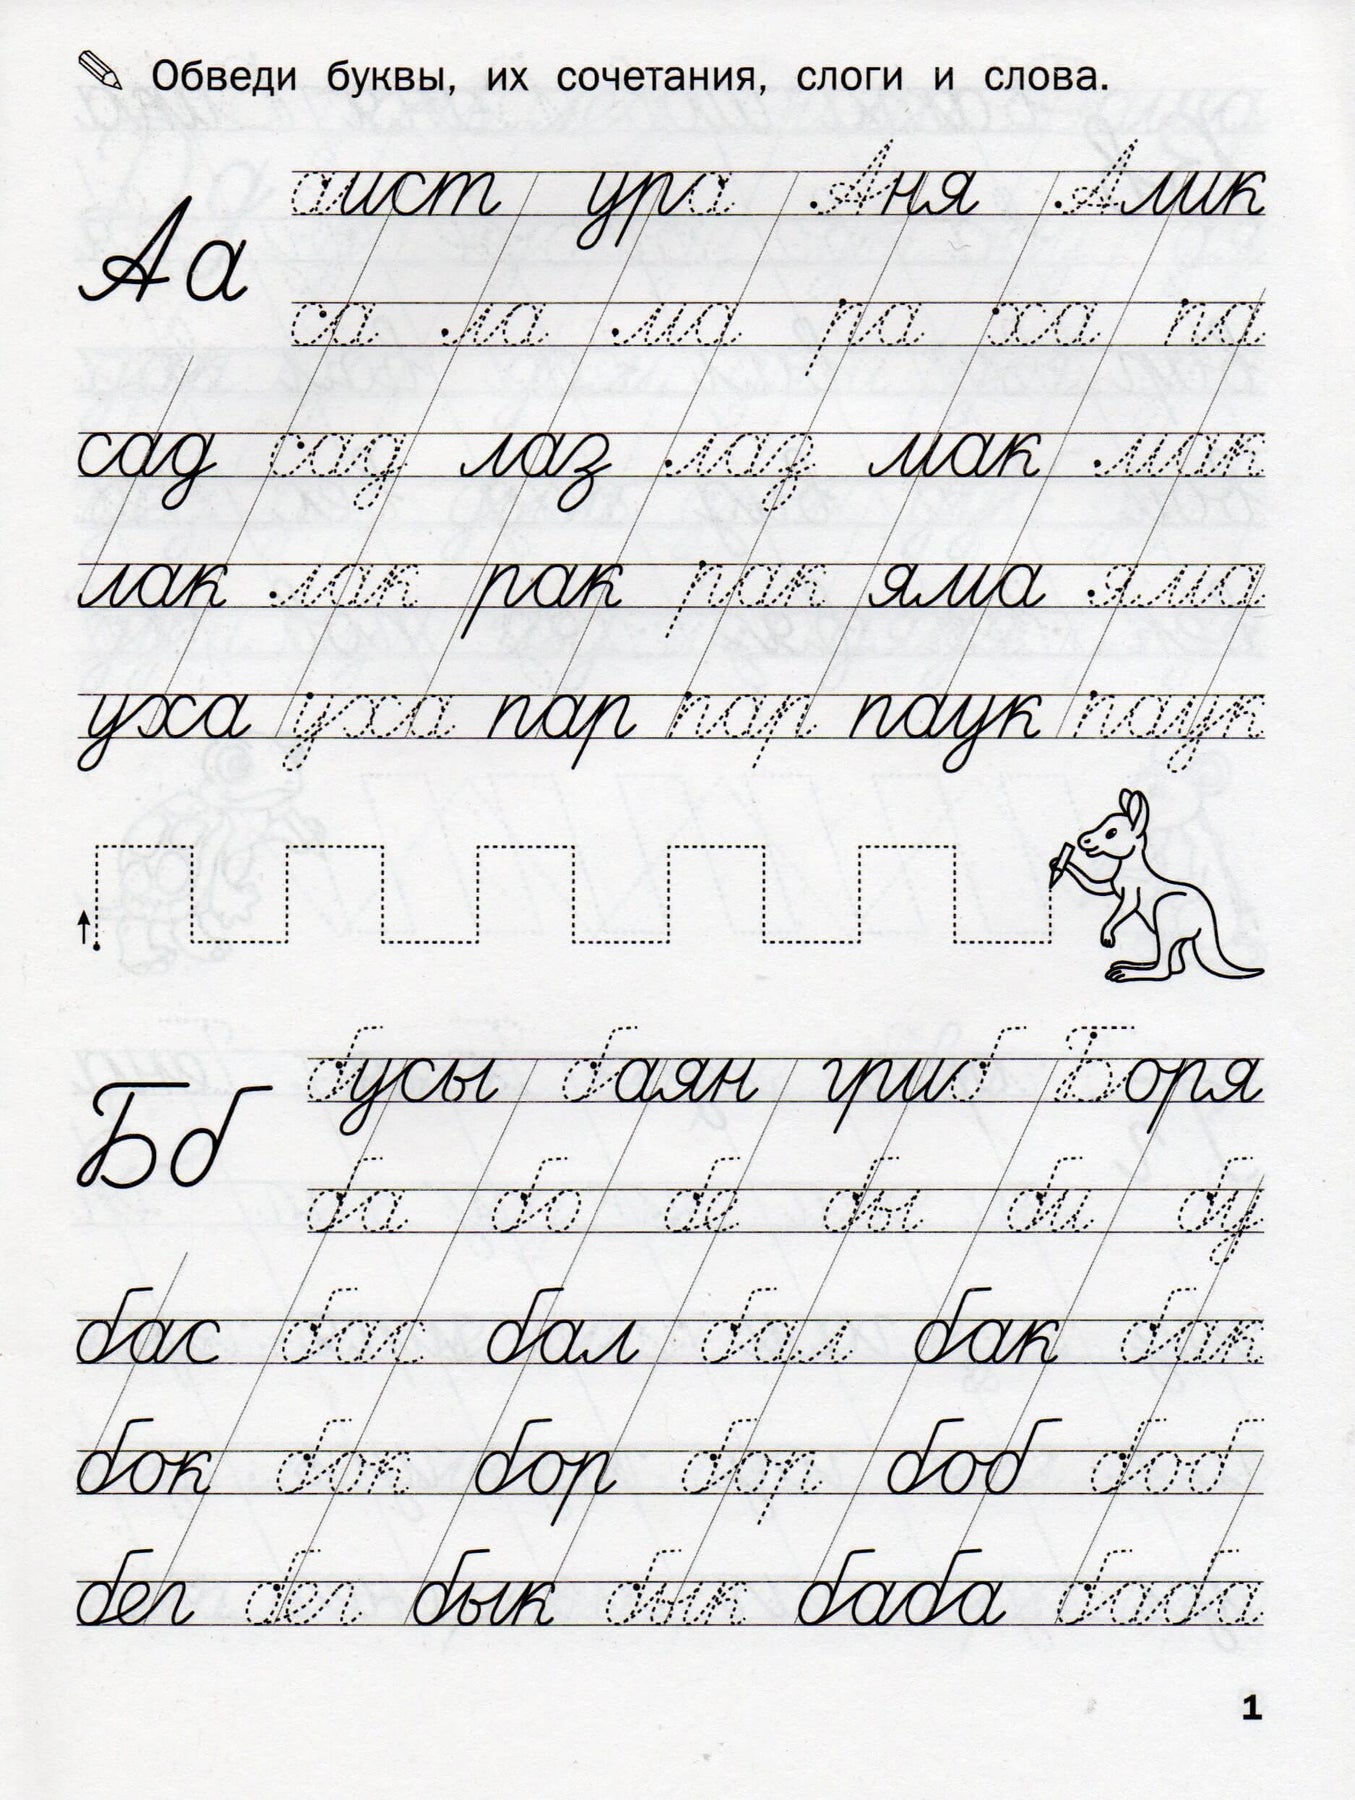 Обведи буквы, их сочетания, слоги и слова.
Аа
аист ура Аня Алик
са ла ма ра ха па
сад сад лаз лаз мак мак
лак лак рак рак яма яма
уха уха пар пар паук паук
Бб
бусы баян гриб Боря
ба бо бе бы би бу
бас бас бал бал бак бак
бок бок бор бор боб боб
бег бег бык бык баба баба
1